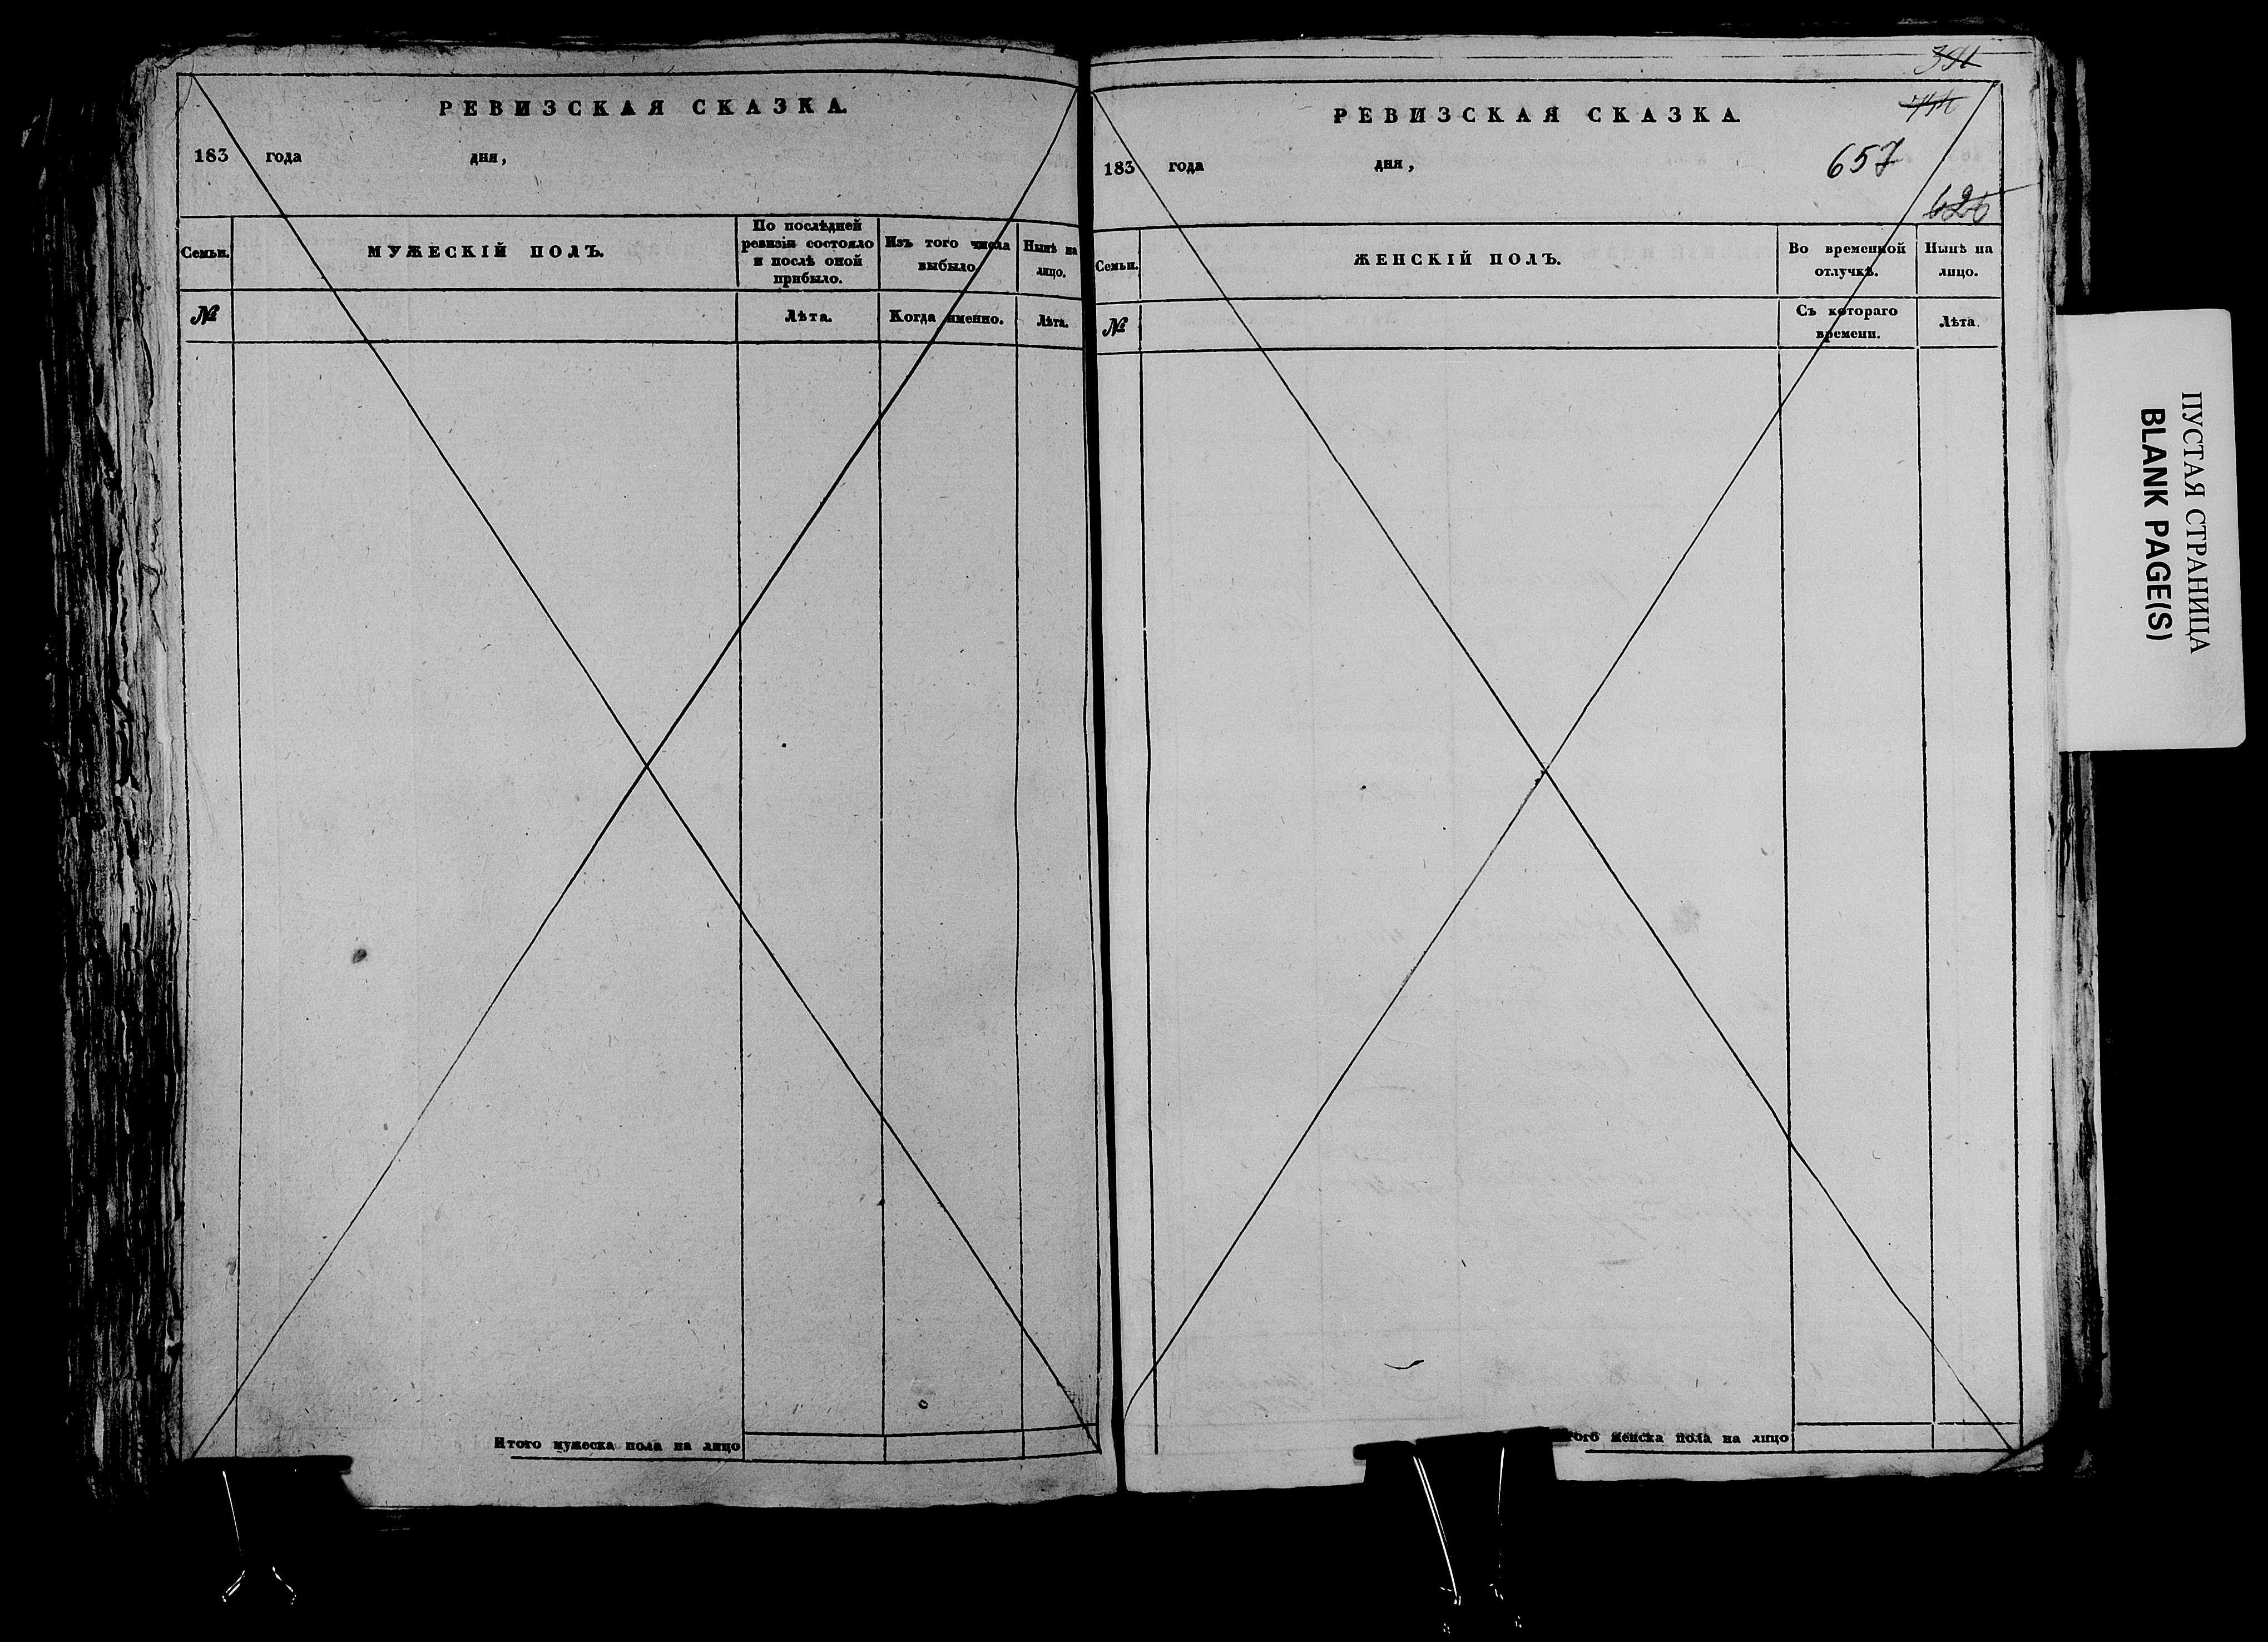 РЕВИЗСКАЯ СКАЗКА.
183 года дня,
Семьи.
МУЖЕСКІЙ ПОЛЪ.
По послѣдней
ревизіи состояло
и послѣ оной
прибыло.
Изъ того числа
выбыло.
Нынѣ на
лицо.
№
Лѣта.
Когда именно.
Лѣта.
Итого мужеска пола на лицо
РЕВИЗСКАЯ СКАЗКА.
183 года дня,
657
626
Семьи.
ЖЕНСКІЙ ПОЛЪ.
Во временной
отлучкѣ.
Нынѣ на
лицо.
№
Съ котораго
времени.
Лѣта.
того женска пола на лицо
ПУСТАЯ СТРАНИЦА
BLANK PAGE(S)